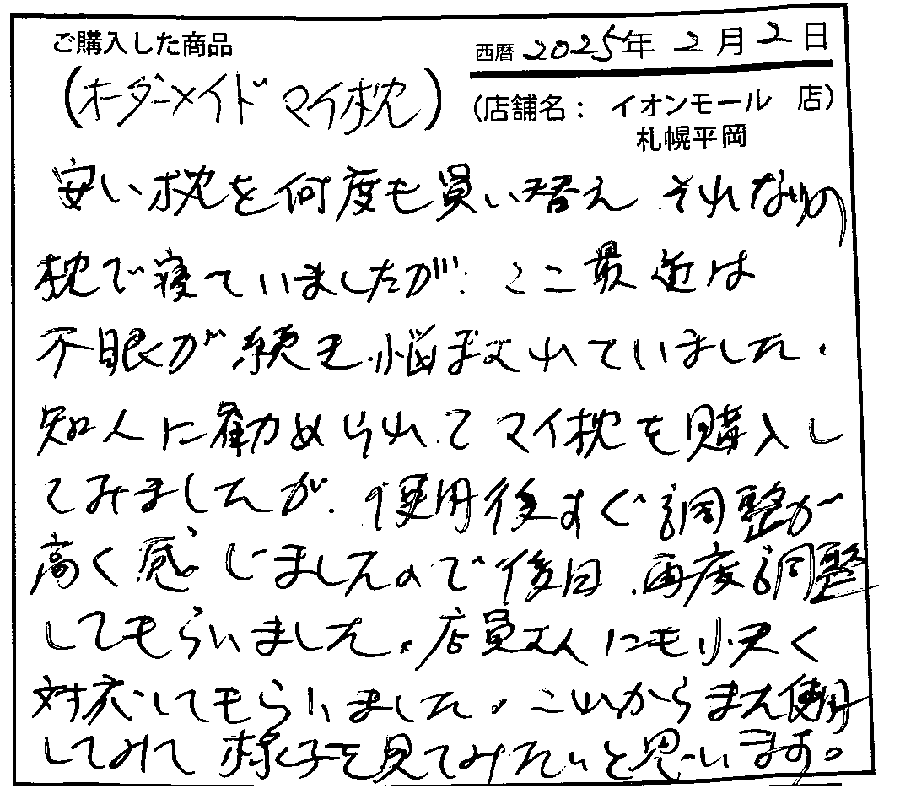 ご購入した商品
西暦 2025年 2月 2日
(オーダーメイド マイ枕)
(店舗名: イオンモール 店)
札幌平岡
安い枕を何度も買い替え それなりの
枕で寝ていましたが、ここ最近は
不眠が続き、悩まされていました。
知人に勧められて マイ枕を購入し
てみましたが、使用後すぐ調整が
高く感じましたので後日、再度調整
してもらいました。店員さんにも快く
対応してもらいました。これからまた使用
してみて 様子を見てみたいと思います。